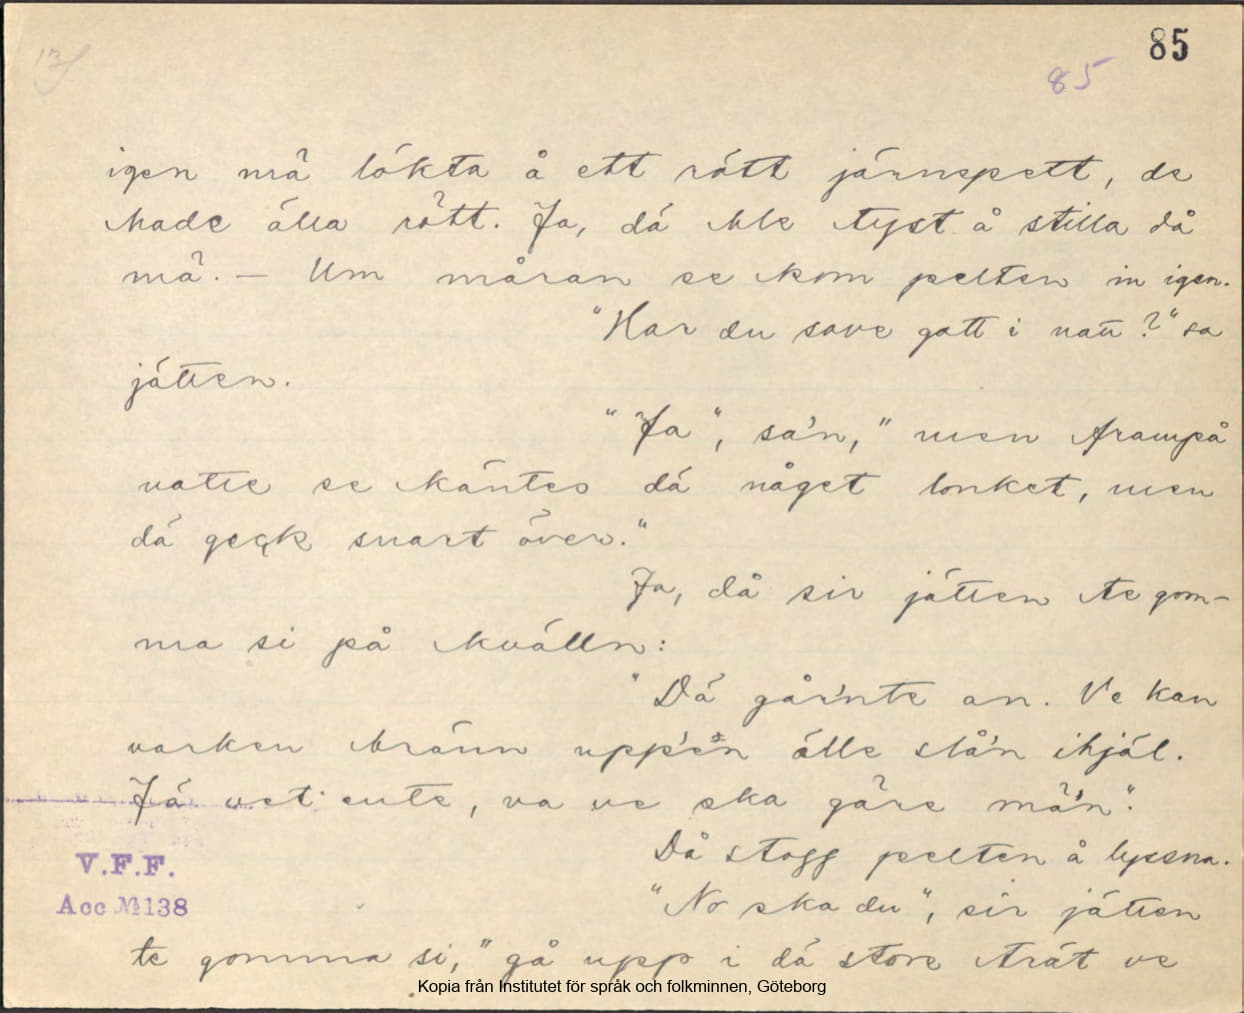 13
85
85
igen mä lókta å ett rótt järnspett, de
hade álla rótt. Ja, dá ble tyst å stilla då
mä. — Um måran se kom pelten in igen.
"Har du save gott i natt?" sa
játten.
"Ja", sa'n, "men frampå
natte se käntes dá något lonket, men
dá geck snart över."
Ja, då sir játten te gom-
ma si på kválln:
"Dá går'nte an. Ve kan
varken bránn upp'en álle slå'n ihjäl.
Já vet ente, va ve ska gäre mä'n".
Då stogg pelten å lyssna.
"No ska du", sir játten
te gomma si, "gå upp i dá store trát ve
V.F.F.
Acc № 138
Kopia från Institutet för språk och folkminnen, Göteborg